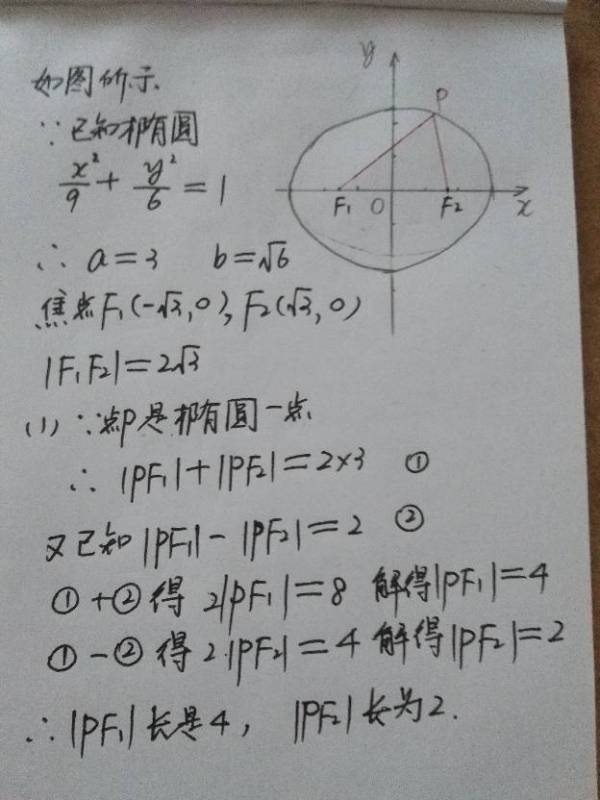 如图所示
∵已知椭圆
x²/9 + y²/6 = 1
∴ a=3 b=√6
焦点F₁(-√3,0), F₂(√3,0)
|F₁F₂|=2√3
(1) ∵点P是椭圆一点
∴ |PF₁|+|PF₂|=2×3 ①
又已知|PF₁|-|PF₂|=2 ②
①+②得 2|PF₁|=8 解得|PF₁|=4
①-②得 2·|PF₂|=4 解得|PF₂|=2
∴|PF₁|长是4, |PF₂|长为2.
y
P
F₁ O F₂ x